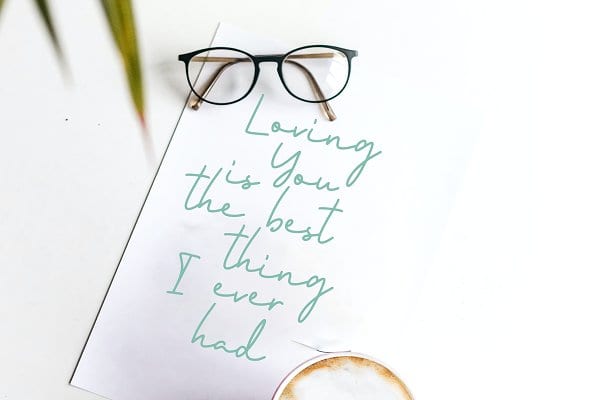 Loving
You
is
the best
thing
I ever
had